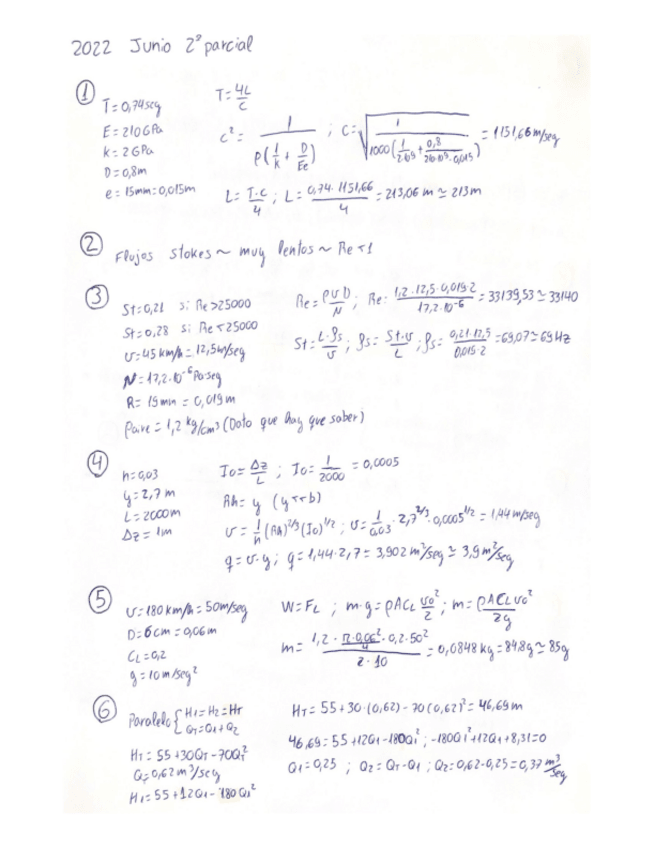 2022 Junio 2º parcial
①
T=0,74seg
E=210GPa
K=2GPa
D=0,8m
e=15mm=0,015m
T=4L/C
C²=1/(ρ(1/K+D/Ee)) ; C=√(1/(1000(1/2·10⁹+0,8/210·10⁹·0,015)))=1151,66m/seg
L=T·C/4 ; L=0,74·1151,66/4=213,06m≃213m
② Flujos Stokes ~ muy lentos ~ Re<1
③
St=0,21 si Re>25000
St=0,28 si Re<25000
v=45km/h=12,5m/seg
N=17,2·10⁻⁶Pa·seg
R=19mm=0,019m
ρaire=1,2kg/cm³ (Dato que hay que saber)
Re=ρVD/N ; Re:1,2·12,5·0,019·2/17,2·10⁻⁶=33139,53≃33140
St=L·fs/v ; fs=St·v/L ; fs=0,21·12,5/0,019·2=69,07≃69Hz
④
n=0,03
y=2,7m
L=2000m
Δz=1m
Io=Δz/L ; Io=1/2000=0,0005
Rh=y (y<<b)
v=1/n(Rh)^2/3(Io)^1/2 ; v=1/0,03·2,7^2/3·0,0005^1/2=1,44m/seg
q=v·y ; q=1,44·2,7=3,902m²/seg≃3,9m²/seg
⑤
v=180km/h=50m/seg
D=6cm=0,06m
CL=0,2
g=10m/seg²
W=FL ; m·g=ρACL vo²/2 ; m=ρACLvo²/2g
m=1,2·π·0,06²/4·0,2·50²/2·10=0,0848kg=84,8g≃85g
⑥
Paralelo{H1=H2=HT
QT=Q1+Q2
HT=55+30QT-70QT²
QT=0,62m³/seg
H1=55+12Q1-180Q1²
HT=55+30·(0,62)-70(0,62)²=46,69m
46,69=55+12Q1-180Q1² ; -180Q1²+12Q1+8,31=0
Q1=0,25 ; Q2=QT-Q1 ; Q2=0,62-0,25=0,37m³/seg